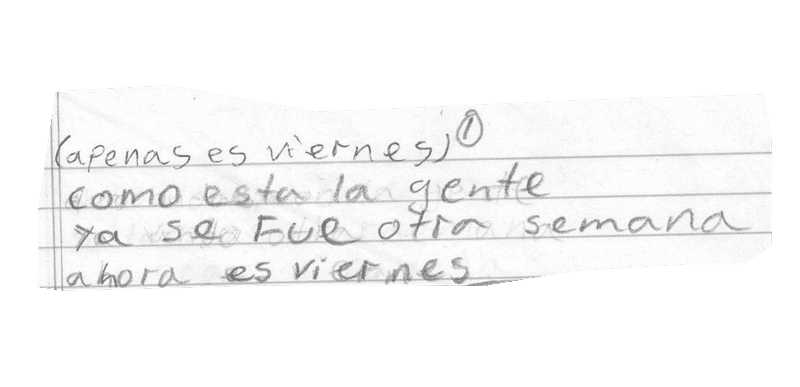 (apenas es viernes) ①
como esta la gente
ya se Fue otra semana
ahora es viernes